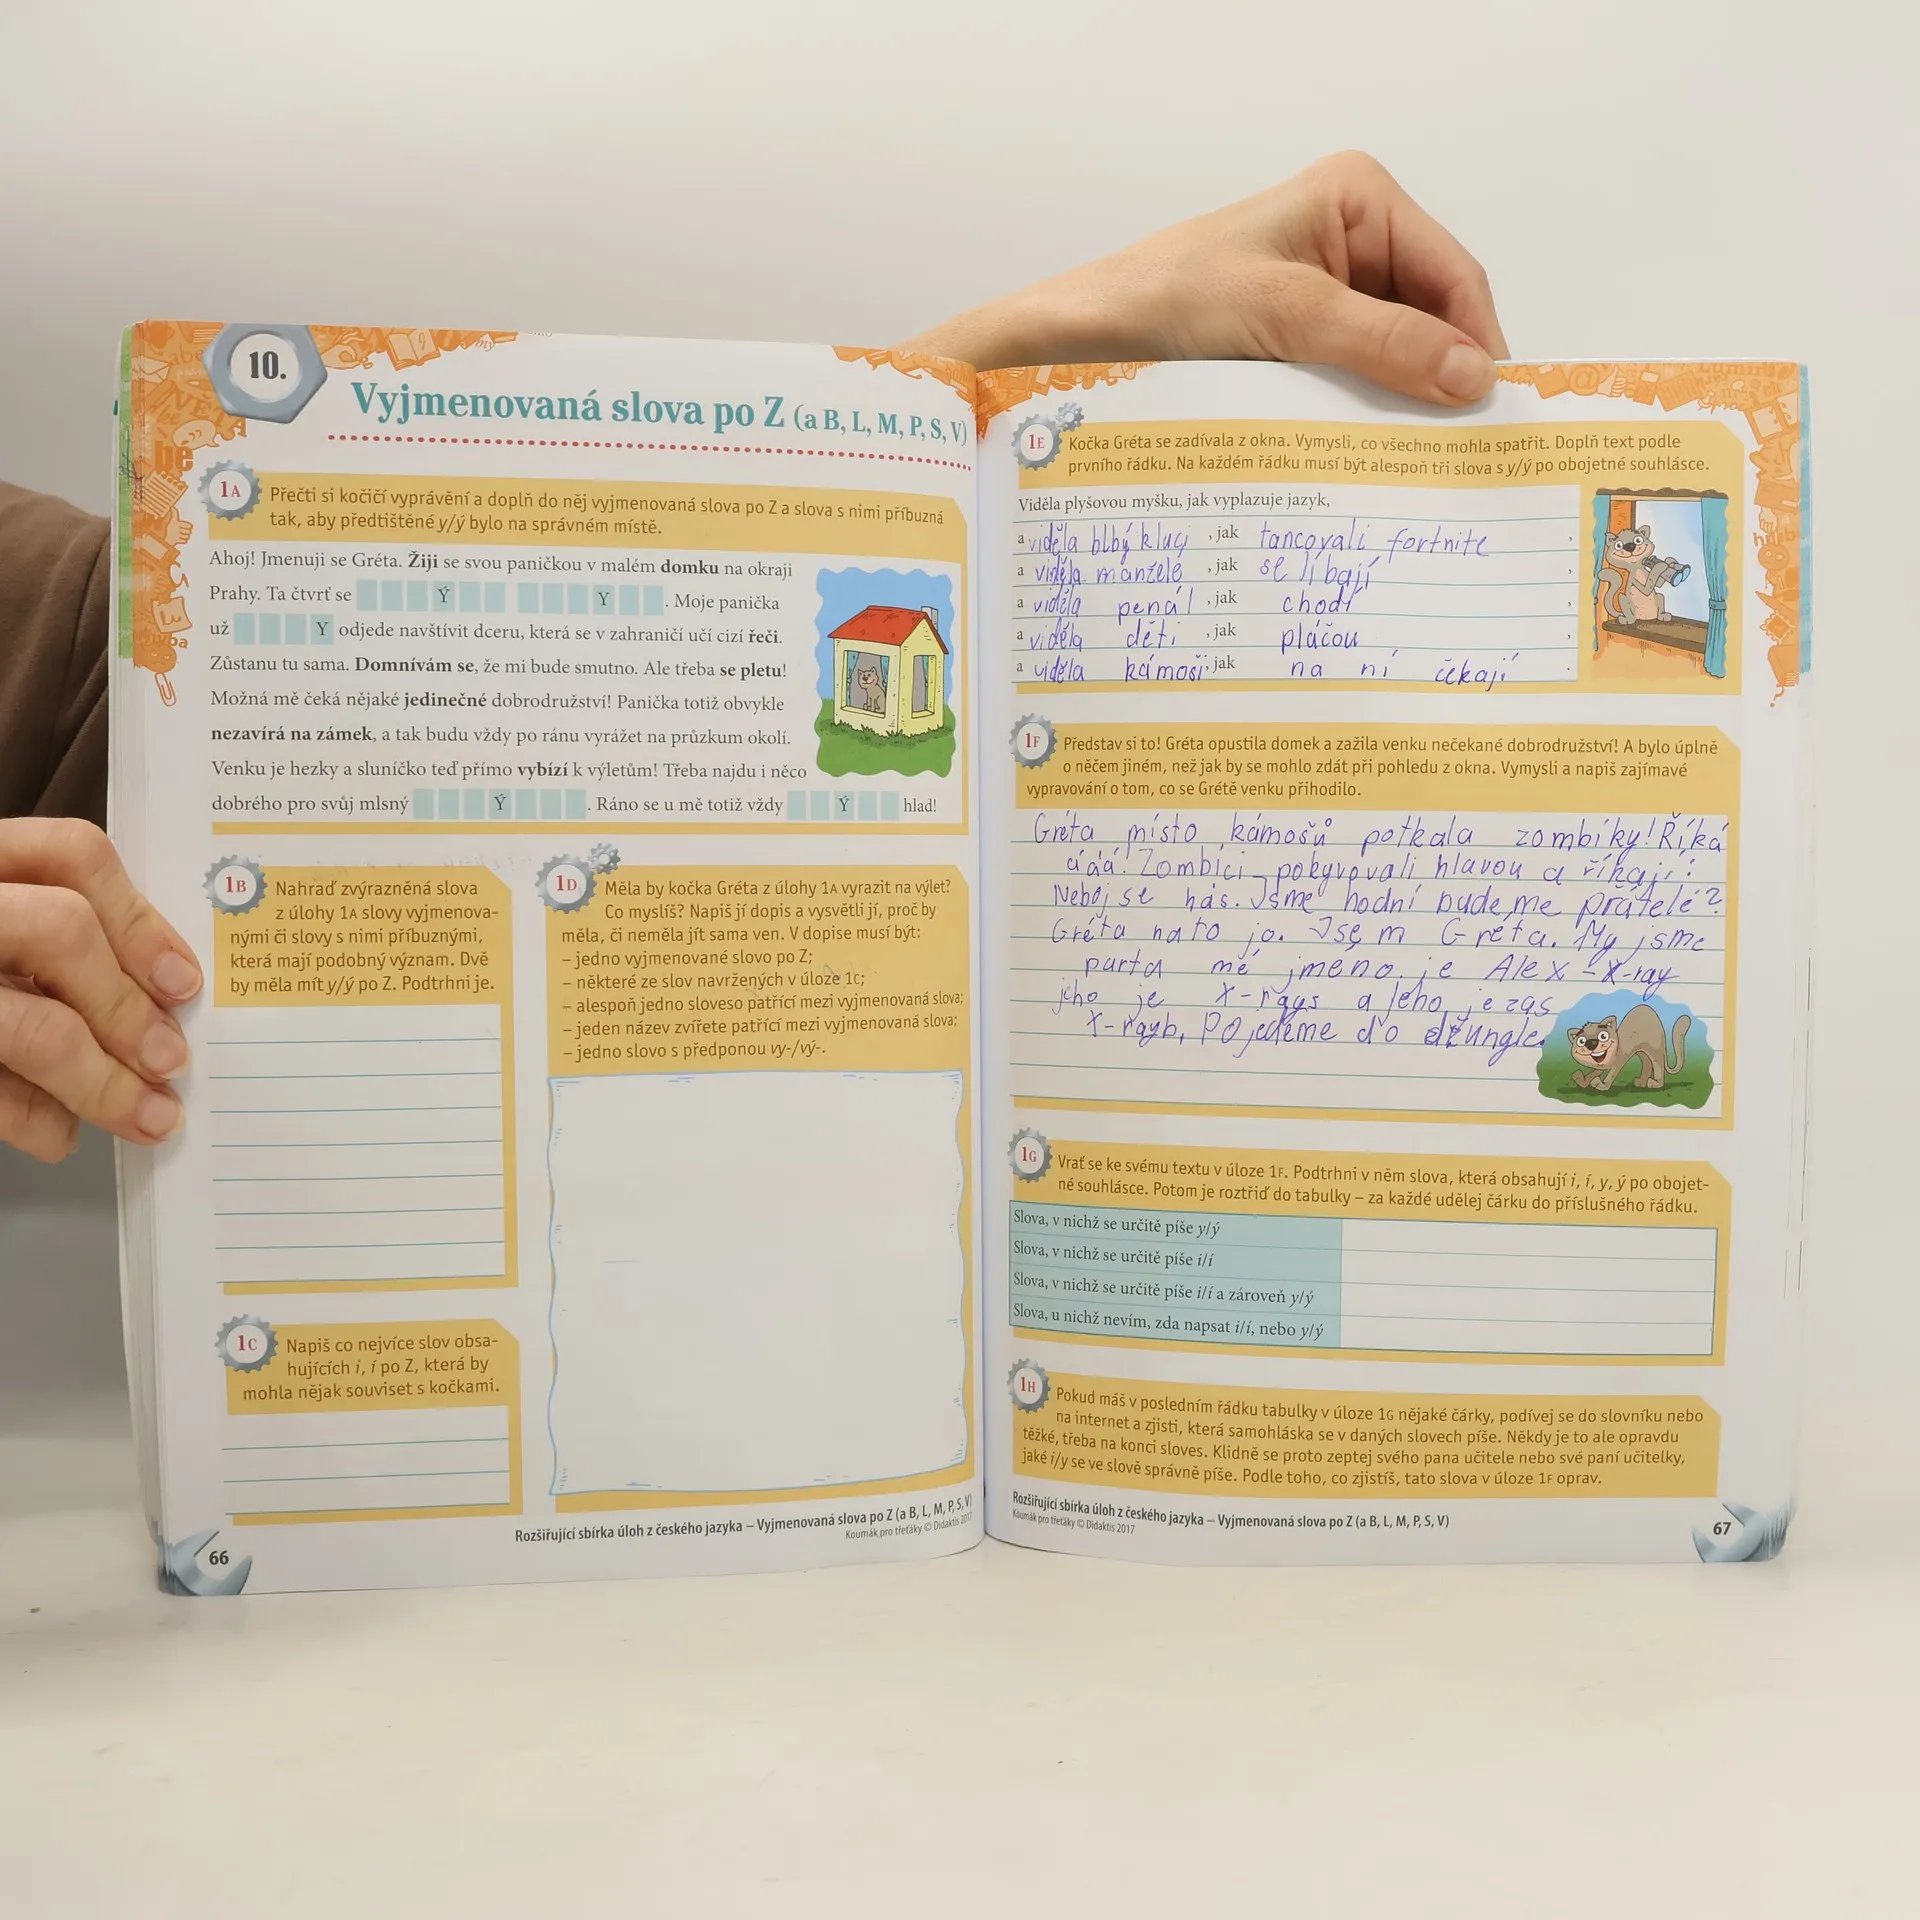 10.
Vyjmenovaná slova po Z (a B, L, M, P, S, V)
1A
Přečti si kočičí vyprávění a doplň do něj vyjmenovaná slova po Z a slova s nimi příbuzná
tak, aby předtištěné y/ý bylo na správném místě.
Ahoj! Jmenuji se Gréta. Žiji se svou paničkou v malém domku na okraji
Prahy. Ta čtvrť se Ý Y . Moje panička
už Y odjede navštívit dceru, která se v zahraničí učí cizí řeči.
Zůstanu tu sama. Domnívám se, že mi bude smutno. Ale třeba se pletu!
Možná mě čeká nějaké jedinečné dobrodružství! Panička totiž obvykle
nezavírá na zámek, a tak budu vždy po ránu vyrážet na průzkum okolí.
Venku je hezky a sluníčko teď přímo vybízí k výletům! Třeba najdu i něco
dobrého pro svůj mlsný Ý . Ráno se u mě totiž vždy Ý hlad!
1B
Nahraď zvýrazněná slova
z úlohy 1A slovy vyjmenova-
nými či slovy s nimi příbuznými,
která mají podobný význam. Dvě
by měla mít y/ý po Z. Podtrhni je.
1C
Napiš co nejvíce slov obsa-
hujících i, í po Z, která by
mohla nějak souviset s kočkami.
1D
Měla by kočka Gréta z úlohy 1A vyrazit na výlet?
Co myslíš? Napiš jí dopis a vysvětli jí, proč by
měla, či neměla jít sama ven. V dopise musí být:
– jedno vyjmenované slovo po Z;
– některé ze slov navržených v úloze 1C;
– alespoň jedno sloveso patřící mezi vyjmenovaná slova;
– jeden název zvířete patřící mezi vyjmenovaná slova;
– jedno slovo s předponou vy-/vý-.
Rozšiřující sbírka úloh z českého jazyka – Vyjmenovaná slova po Z (a B, L, M, P, S, V)
Koumák pro třeťáky © Didaktis 2017
66
1E
Kočka Gréta se zadívala z okna. Vymysli, co všechno mohla spatřit. Doplň text podle
prvního řádku. Na každém řádku musí být alespoň tři slova s y/ý po obojetné souhlásce.
Viděla plyšovou myšku, jak vyplazuje jazyk,
a viděla blbý kluci , jak tancovali fortnite ,
a viděla manžele , jak se líbají ,
a viděla penál , jak chodí ,
a viděla děti , jak pláčou ,
a viděla kámoši, jak na ní čekají .
1F
Představ si to! Gréta opustila domek a zažila venku nečekané dobrodružství! A bylo úplně
o něčem jiném, než jak by se mohlo zdát při pohledu z okna. Vymysli a napiš zajímavé
vypravování o tom, co se Grétě venku přihodilo.
Gréta místo kámošů potkala zombíky! Říká
ááá! Zombíci pokyvovali hlavou a říkají:
Neboj se nás. Jsme hodní budeme přátelé?
Gréta na to jo. Jsem Gréta. My jsme
parta mé jméno je Alex - X-ray
jeho je X-rays a jeho je zas
X-rayb, Pojedeme do džungle.
1G
Vrať se ke svému textu v úloze 1F. Podtrhni v něm slova, která obsahují i, í, y, ý po obojet-
né souhlásce. Potom je roztřiď do tabulky – za každé udělej čárku do příslušného řádku.
Slova, v nichž se určitě píše y/ý
Slova, v nichž se určitě píše i/í
Slova, v nichž se určitě píše i/í a zároveň y/ý
Slova, u nichž nevím, zda napsat i/í, nebo y/ý
1H
Pokud máš v posledním řádku tabulky v úloze 1G nějaké čárky, podívej se do slovníku nebo
na internet a zjisti, která samohláska se v daných slovech píše. Někdy je to ale opravdu
těžké, třeba na konci sloves. Klidně se proto zeptej svého pana učitele nebo své paní učitelky,
jaké i/y se ve slově správně píše. Podle toho, co zjistíš, tato slova v úloze 1F oprav.
Rozšiřující sbírka úloh z českého jazyka – Vyjmenovaná slova po Z (a B, L, M, P, S, V)
Koumák pro třeťáky © Didaktis 2017
67